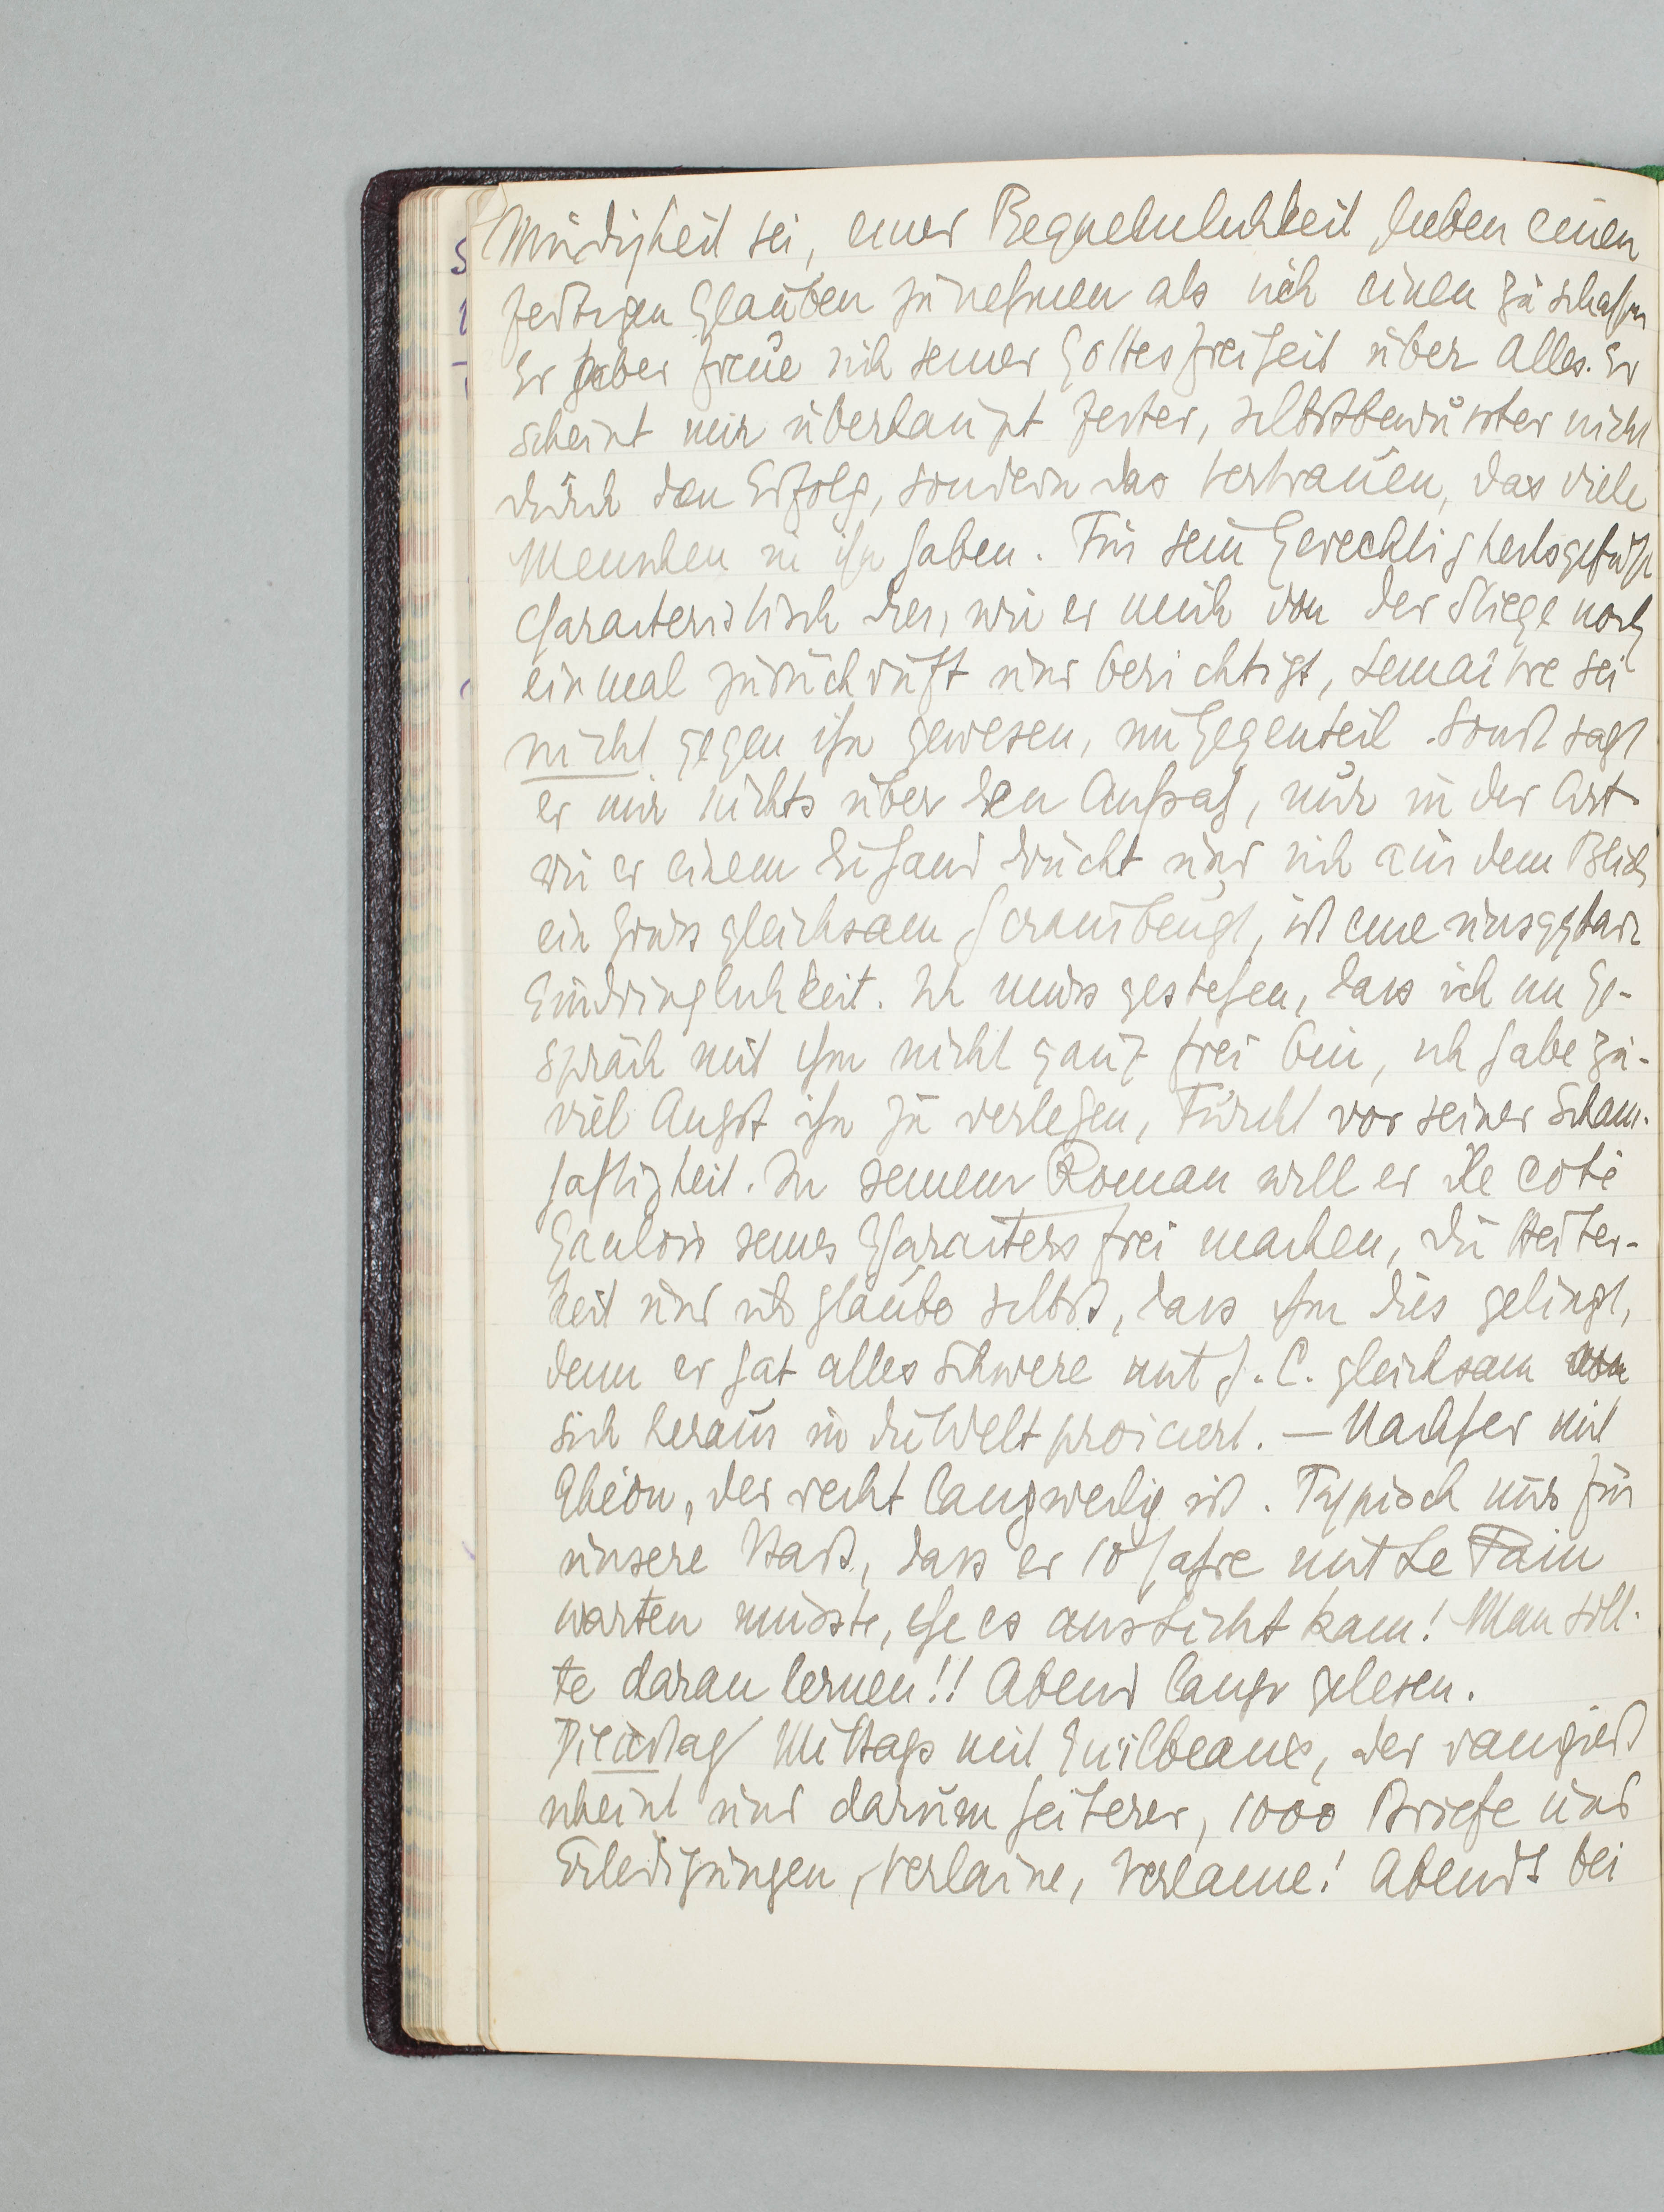 Müdigkeit sei, einer Bequemlichkeit lieber einen
fertigen Glauben zu nehmen als sich einen zu schaffen
Er aber freue sich seiner Gottesfreiheit über Alles. Er
scheint mir überhaupt fester, selbstbewusster nicht
durch den Erfolg, sondern das Vertrauen, das viele
Menschen in ihn haben. Für sein Gerechtigkeitsgefühl
charakteristisch dies, wie er mich von der Stiege noch
einmal zurückruft und berichtigt, Lemaître sei
nicht gegen ihn gewesen, im Gegenteil. Sonst sagt
er mir nichts über den Aufsatz, nur in der Art
wie er einem die Hand drückt und sich aus dem Blick
ein Gruss gleichsam herausbeugt, ist eine unsagbare
Eindringlichkeit. Ich muss gestehen, dass ich im Ge-
spräch mit ihm nicht ganz frei bin, ich habe zu-
viel Angst ihn zu verletzen, Furcht vor seiner Scham-
haftigkeit. In seinem Roman will er die coté
Gaulois seines Charakters frei machen, die Heiter-
keit und ich glaube selbst, dass ihm dies gelingt,
denn er hat alles Schwere mit J. C. gleichsam von
sich heraus in die Welt proiciert. – Nachher mit
Ghéon, der recht langweilig ist. Typisch nur für
unsere Hast, dass er 10 Jahre mit Le Pain
warten musste, ehe es ans Licht kam! Man soll-
te daran lernen!! Abend lange gelesen.
Dienstag Mittags mit Guilbeaux, der rangiert
scheint und darum heiterer, 1000 Briefe und
Erledigungen, Verlaine, Verlaine! Abends bei